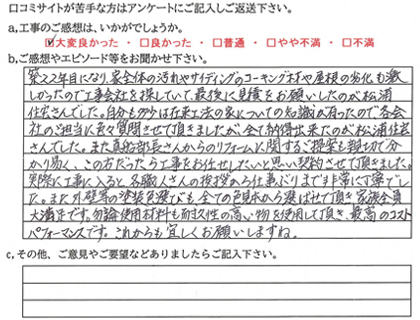 口コミサイトが苦手な方はアンケートにご記入しご返送下さい。
a,工事のご感想は、いかがでしょうか。
☑大変良かった ・ □良かった ・ □普通 ・ □やや不満 ・ □不満
b,ご感想やエピソード等をお聞かせ下さい。
築22年目になり、家全体の汚れやサイディングのコーキング材や屋根の劣化も激
しかったので工事会社を探していて、最後に見積をお願いしたのが松浦
住宅さんでした。自分も多少は在来工法の家についての知識が有ったので各会
社のご担当に色々質問させて頂きましたが、全て納得出来たのが松浦住宅
さんでした。また真舘部長さんからのリフォームに関するご提案も親切で分
かり易く、この方だったら工事をお任せしたいと思い契約させて頂きました。
実際に工事に入ると、各職人さんの挨拶から仕事ぶりまで非常に丁寧でし
た。また外壁等の塗装色選びも、全ての色見本から選ばせて頂き家族全員
大満足です。勿論使用材料も耐久性の高い物を使用して頂き、最高のコスト
パフォーマンスです。これからも宜しくお願いしますね。
c,その他、ご意見やご要望などありましたらご記入下さい。